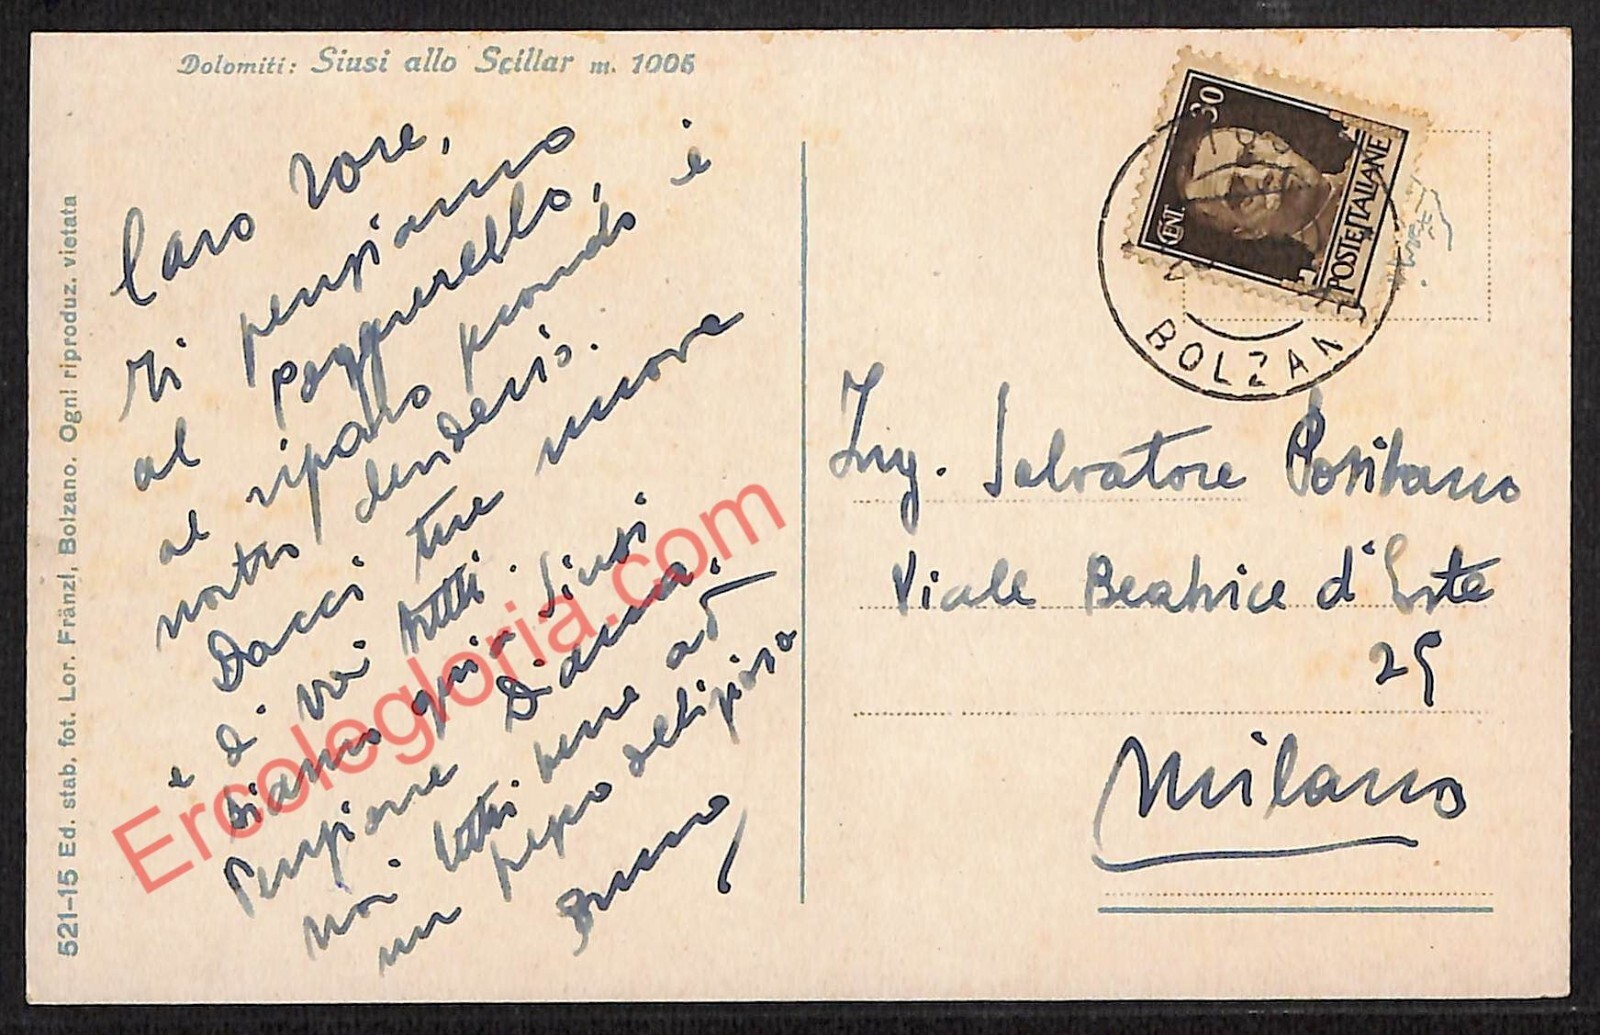 Dolomiti: Siusi allo Scillar m. 1006
521-15 Ed. stab. fot. Lor. Fränzl, Bolzano. Ogni riproduz. vietata
Caro Tore,
ti pensiamo
al
al riparo quando è
nostro desiderio.
Dacci tue nuove
e di voi tutti.
Siamo qui a Siusi
Pensione Diana.
noi tutti bene ad
un
Bruno
CENT. 30
POSTE ITALIANE
BOLZAN
Ing. Salvatore Positano
Viale Beatrice d'Este
25
Milano
Ercolegloria.com